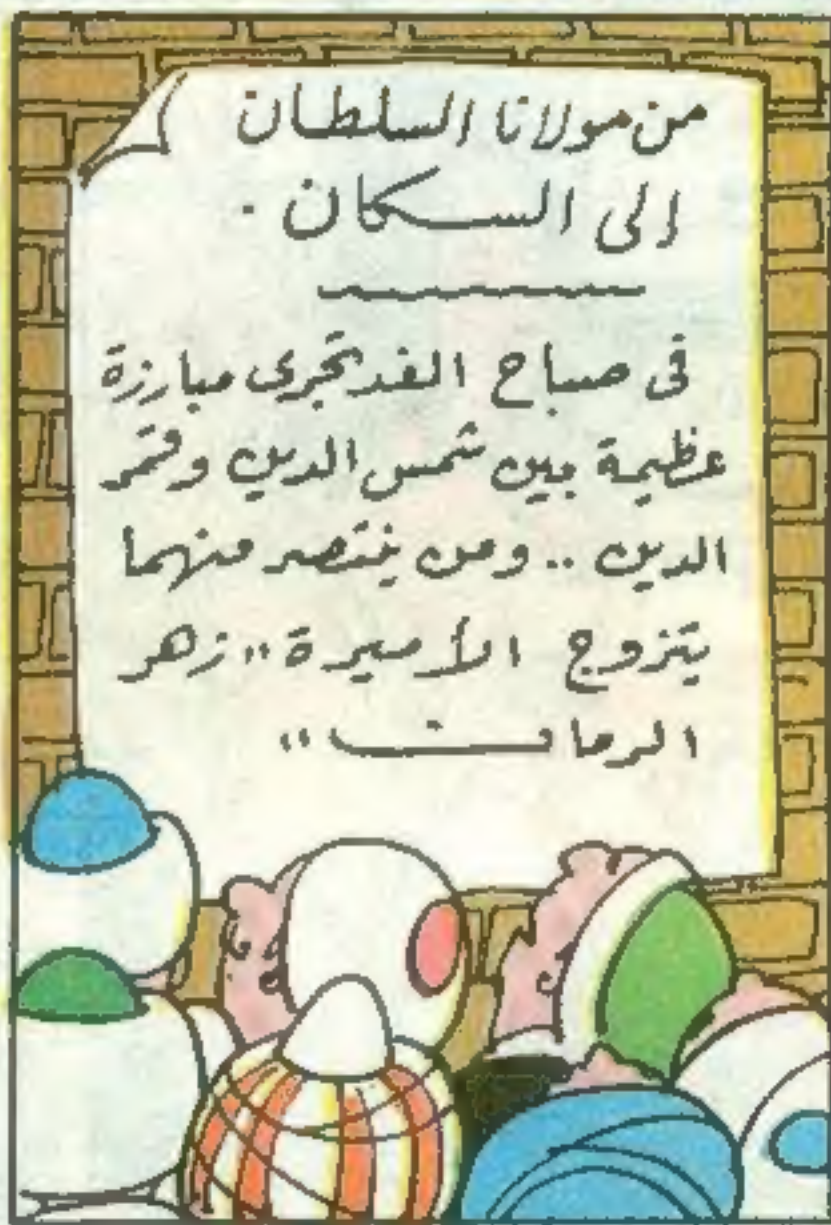 من مولانا السلطان
الى السكان .
فى صباح الغد تجرى مبارزة
عظيمة بين شمس الدين وقمر
الدين .. ومن ينتصر منهما
يتزوج الأميرة "زهر
الرمان"